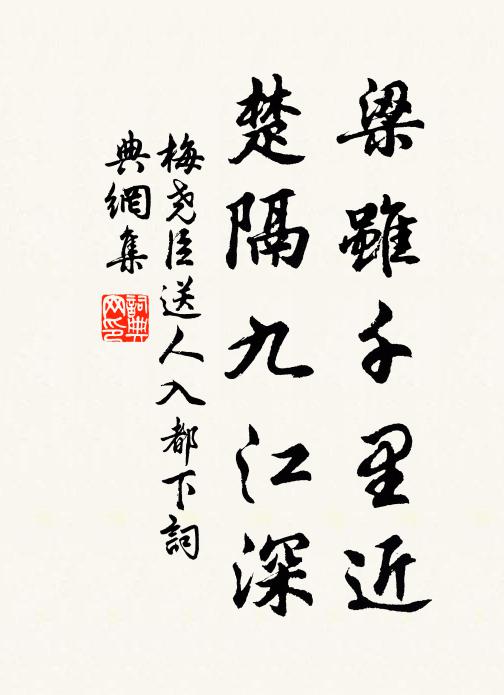 梁雖千里近
楚隔九江深
梅堯臣送人入都下詞
典網集
詞典
网印